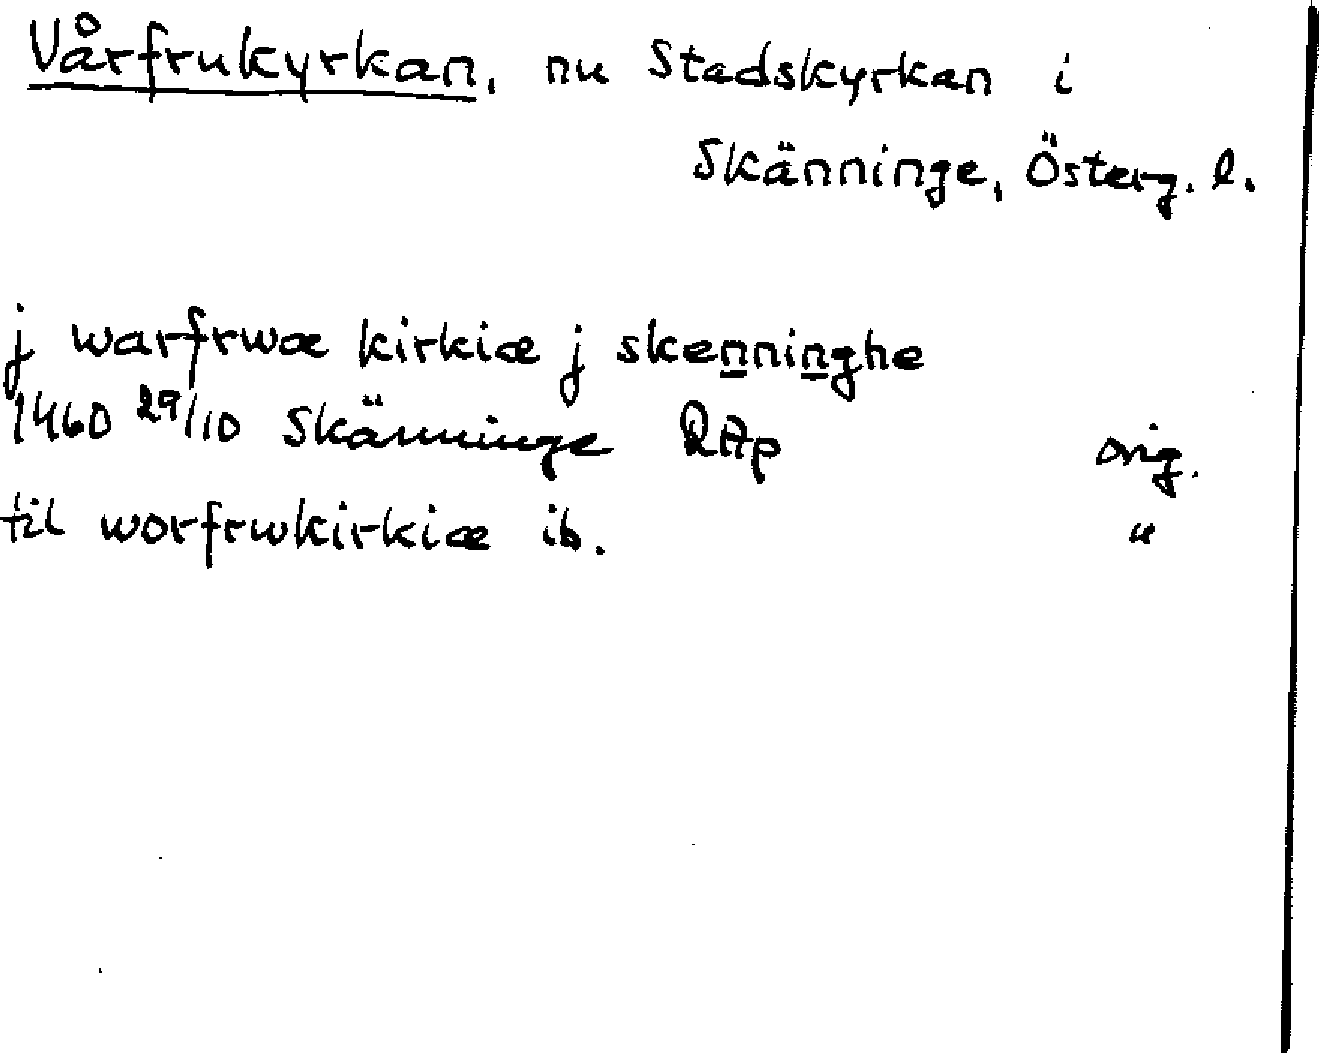 Vårfrukyrkan, nu Stadskyrkan i
Skänninge, Österg. l.
j warfrwæ kirkiæ j skenninghe
1460 29/10 Skänninge RAp orig.
til worfrwkirkiæ ib. "